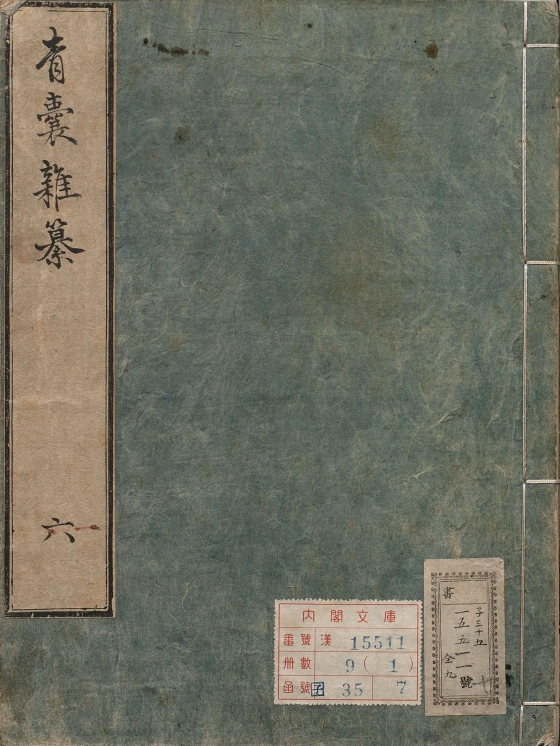 青囊雜纂
六
內閣文庫
番號 漢 15511
冊數 9 ( 1 )
函號 子 35 7
子三十五
書 一五五一一號
全九